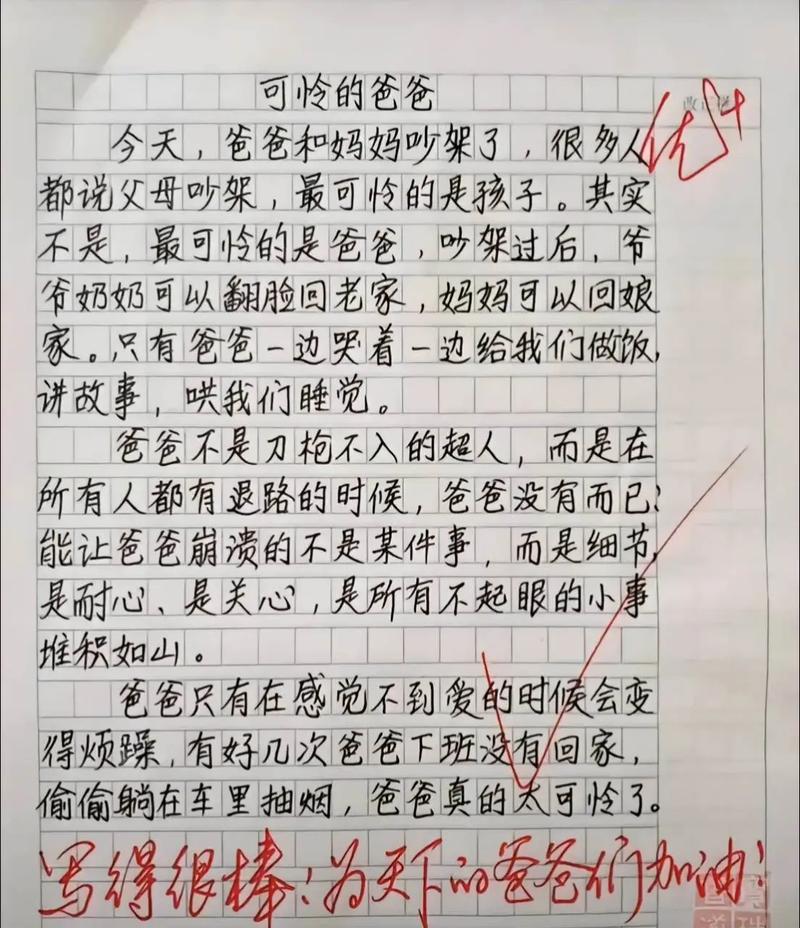 可怜的爸爸
优+
今天，爸爸和妈妈吵架了，很多人
都说父母吵架，最可怜的是孩子。其实
不是，最可怜的是爸爸，吵架过后，爷
爷奶奶可以翻脸回老家，妈妈可以回娘
家。只有爸爸一边哭着一边给我们做饭，
讲故事，哄我们睡觉。
爸爸不是刀枪不入的超人，而是在
所有人都有退路的时候，爸爸没有而已？
能让爸爸崩溃的不是某件事，而是细节，
是耐心、是关心，是所有不起眼的小事
堆积如山。
爸爸只有在感觉不到爱的时候会变
得烦躁，有好几次爸爸下班没有回家，
偷偷躺在车里抽烟，爸爸真的太可怜了。
写得很棒！为天下的爸爸们加油！